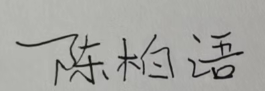 陈柏语